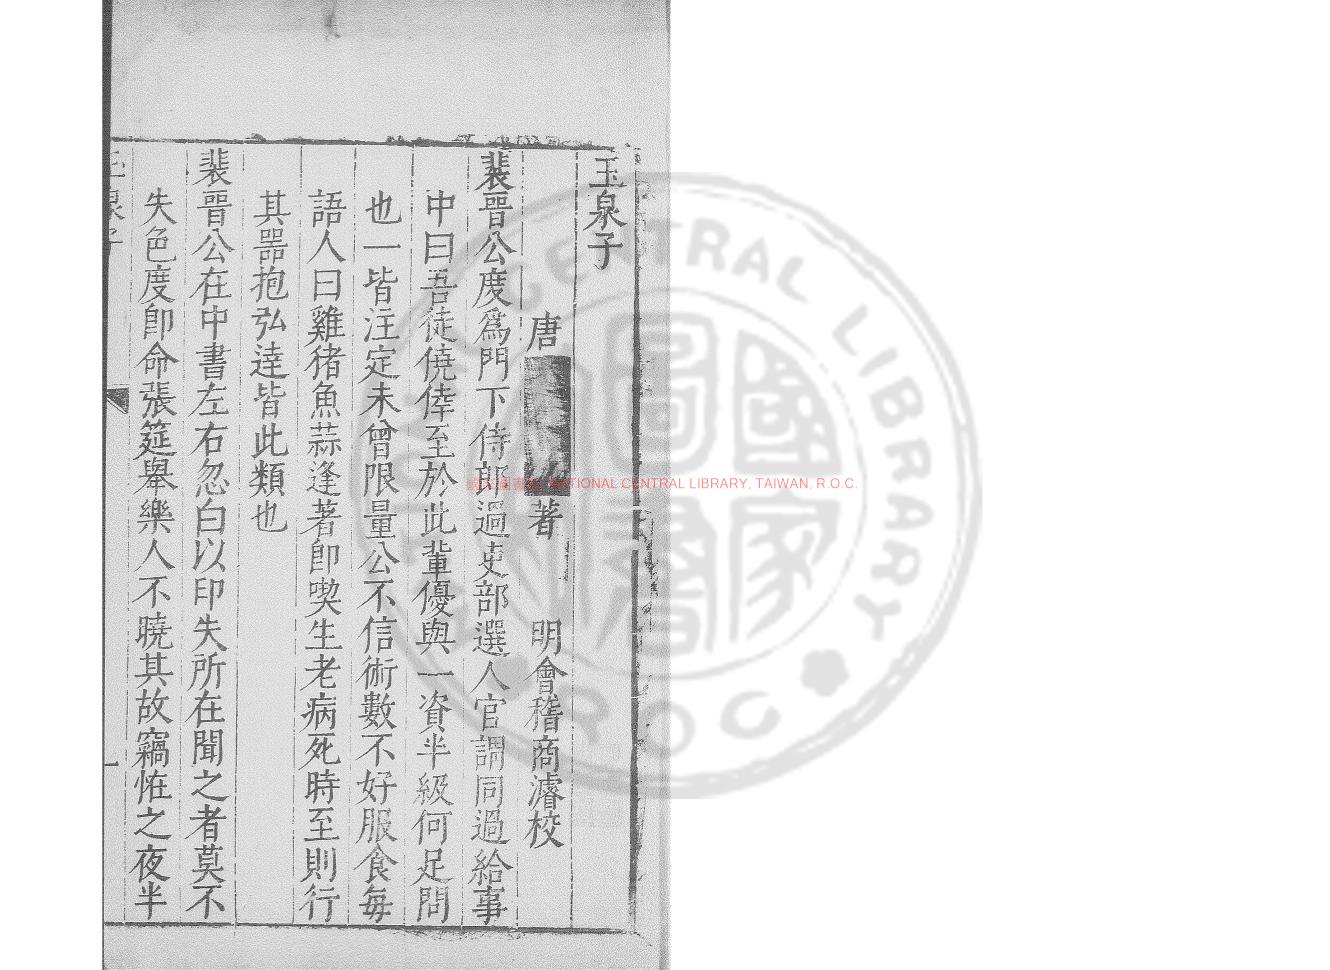 玉泉子
唐 著 明會稽商濬校
裴晉公度爲門下侍郎過吏部選人官謂同過給事
中曰吾徒僥倖至於此輩優與一資半級何足問
也一皆注定未曾限量公不信術數不好服食每
語人曰雞猪魚蒜逢著卽喫生老病死時至則行
其器抱弘達皆此類也
裴晉公在中書左右忽白以印失所在聞之者莫不
失色度卽命張筵舉樂人不曉其故竊恠之夜半
玉泉子
一
NATIONAL CENTRAL LIBRARY, TAIWAN, R.O.C.
國家圖書館
CENTRAL LIBRARY
ROC